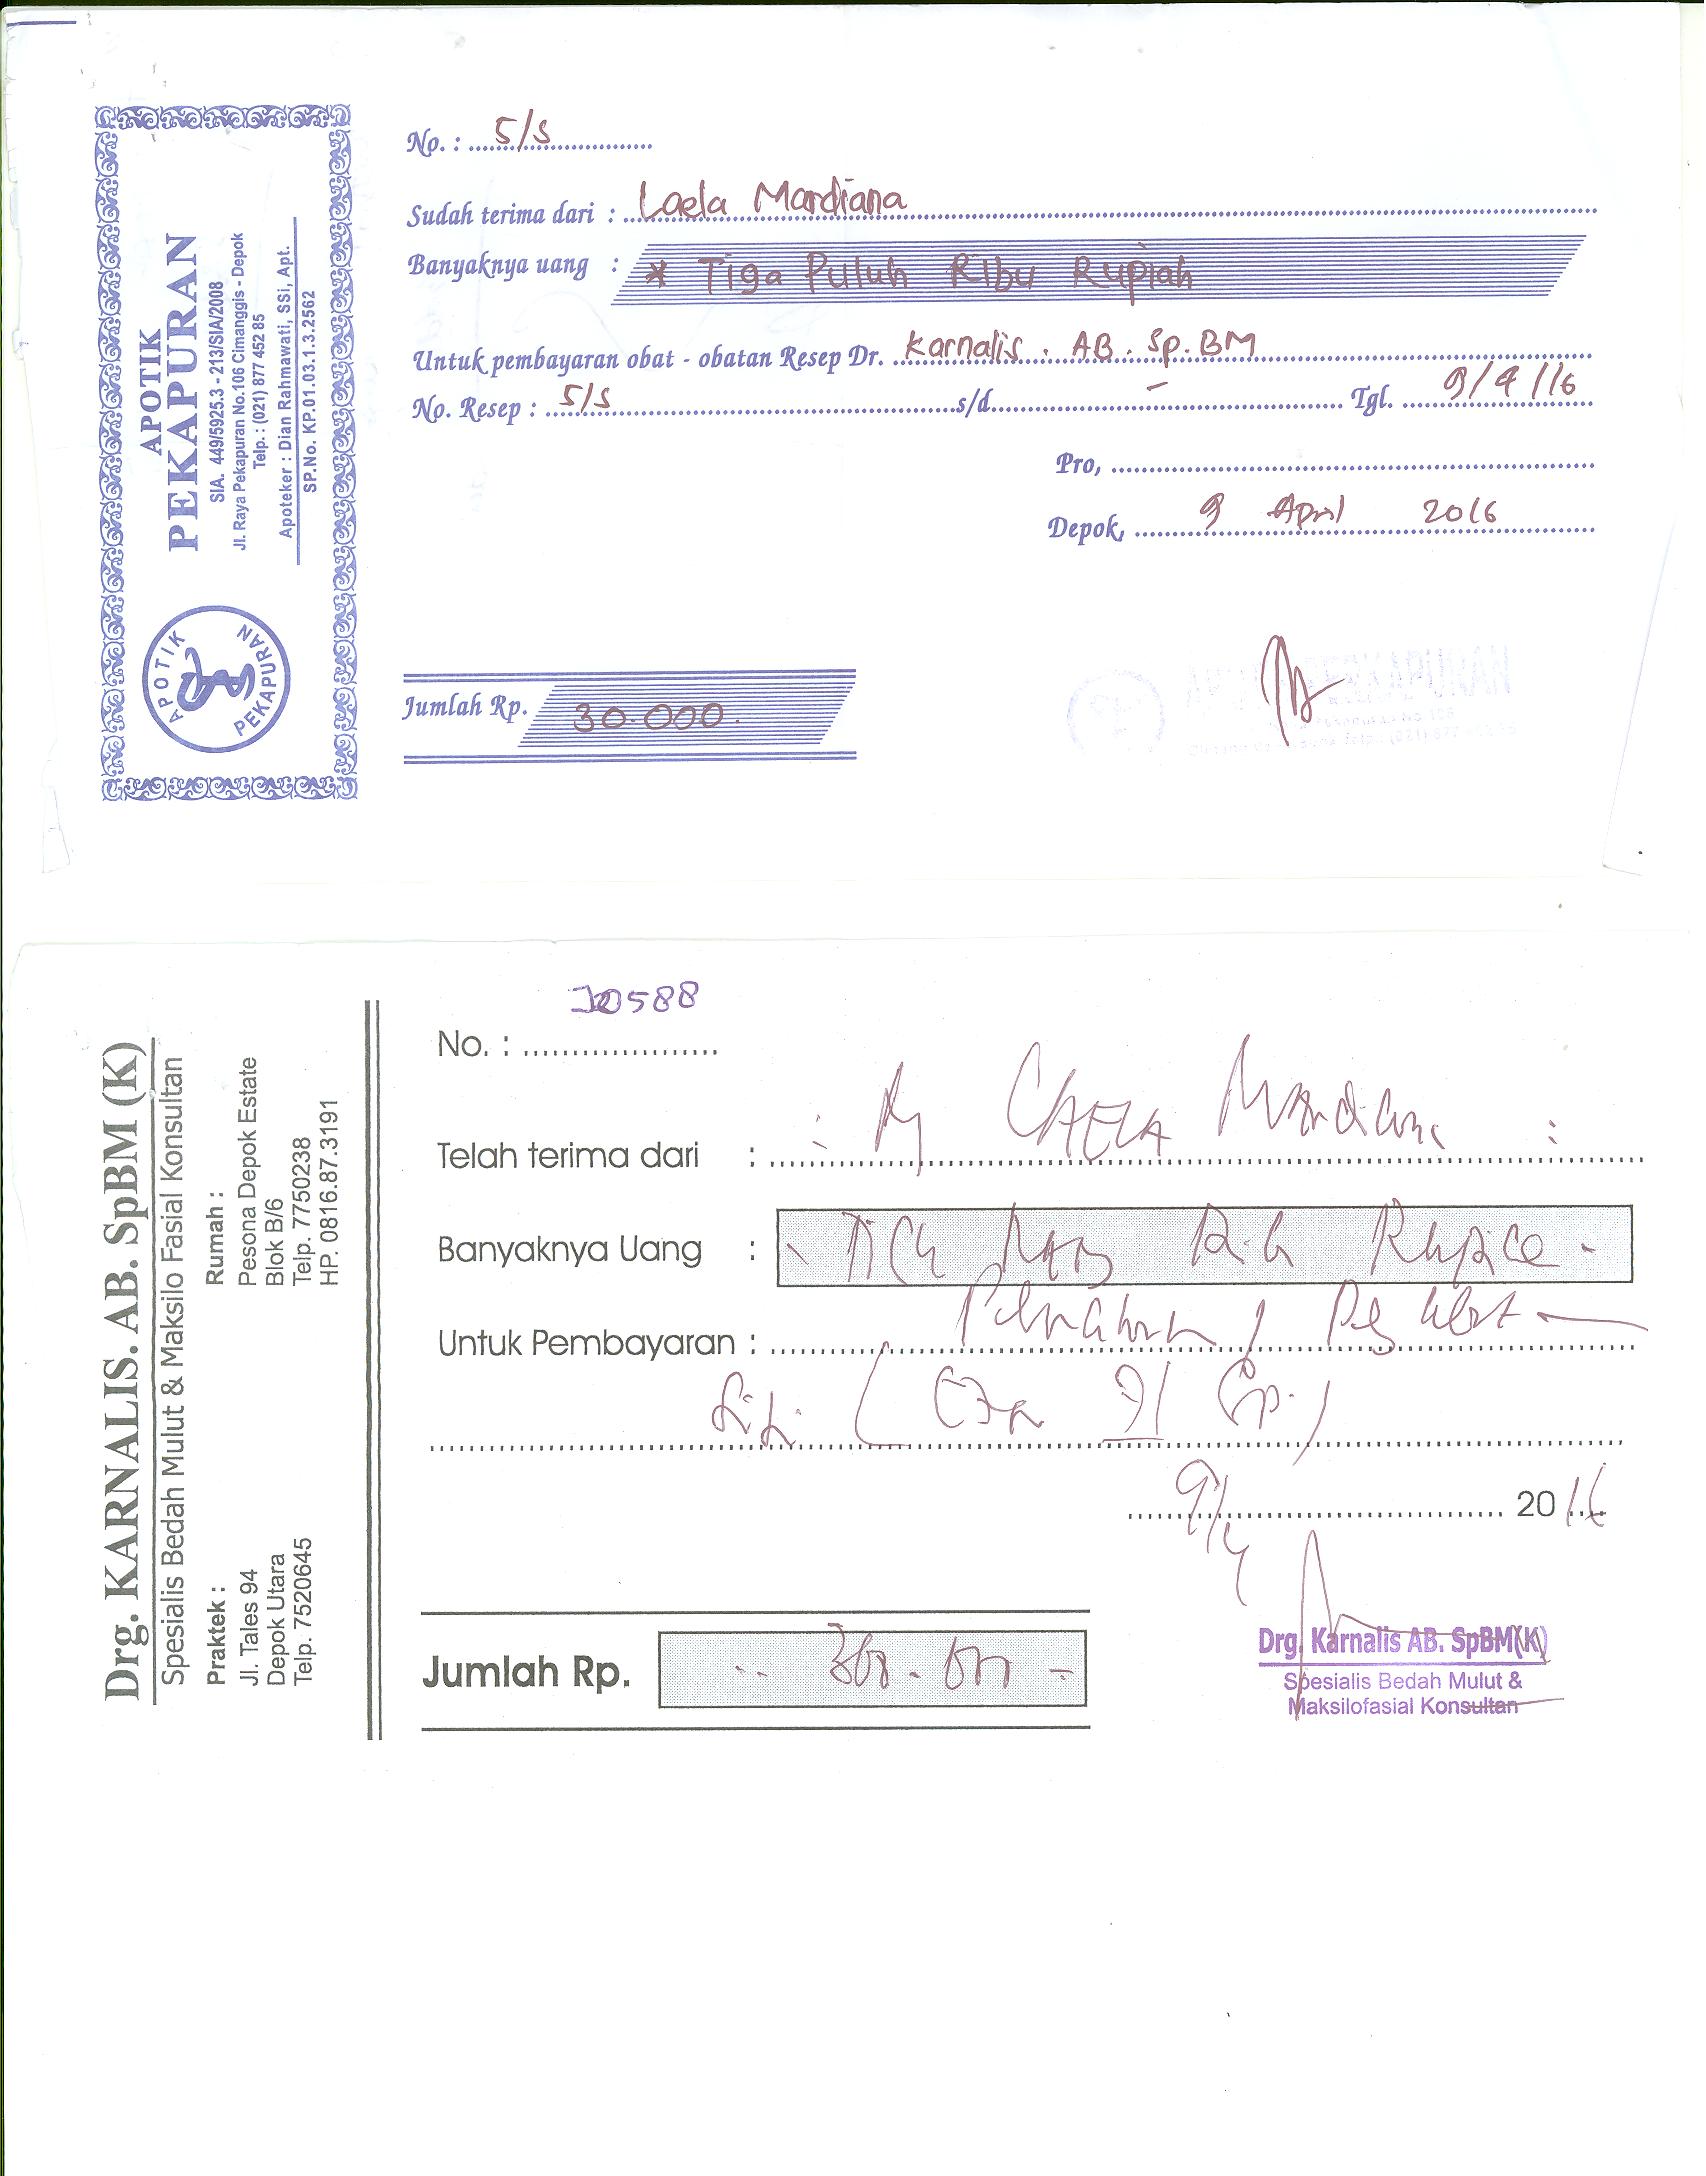 APOTIK
PEKAPURAN
SIA. 449/5925.3 - 213/SIA/2008
Jl. Raya Pekapuran No.106 Cimanggis - Depok
Telp. : (021) 877 452 85
Apoteker : Dian Rahmawati, SSi, Apt.
SP.No. KP.01.03.1.3.2562
APOTIK PEKAPURAN
No. : 5/S
Sudah terima dari : Laela Mardiana
Banyaknya uang : * Tiga Puluh Ribu Rupiah
Untuk pembayaran obat - obatan Resep Dr. Karnalis . AB . Sp. BM
No. Resep : 5/S s/d. - Tgl. 9/4/16
Pro,
Depok, 9 April 2016
Jumlah Rp. 30.000.
Drg. KARNALIS. AB. SpBM (K)
Spesialis Bedah Mulut & Maksilo Fasial Konsultan
Praktek :
Jl. Tales 94
Depok Utara
Telp. 7520645
Rumah :
Pesona Depok Estate
Blok B/6
Telp. 7750238
HP. 0816.87.3191
No. :
Telah terima dari : LAELA Mardiana
Banyaknya Uang : Rupiah
Untuk Pembayaran :
9/4 2016
Jumlah Rp.
Drg. Karnalis AB. SpBM(K)
Spesialis Bedah Mulut &
Maksilofasial Konsultan